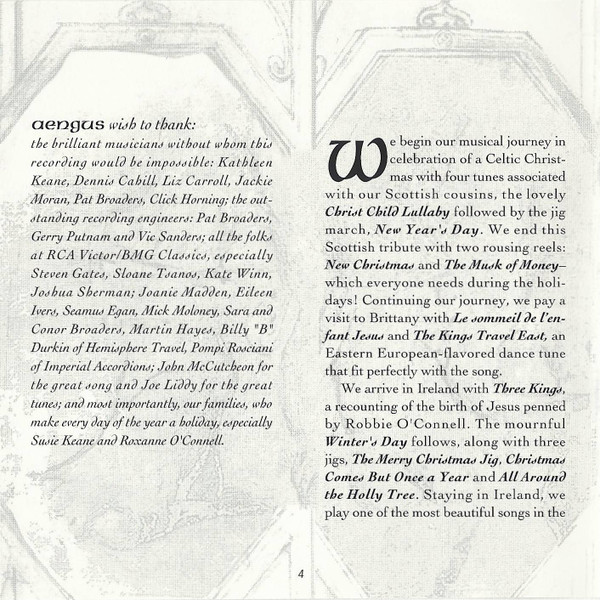 aengus wish to thank:
the brilliant musicians without whom this
recording would be impossible: Kathleen
Keane, Dennis Cahill, Liz Carroll, Jackie
Moran, Pat Broaders, Click Horning; the out-
standing recording engineers: Pat Broaders,
Gerry Putnam and Vic Sanders; all the folks
at RCA Victor/BMG Classics, especially
Steven Gates, Sloane Tsanos, Kate Winn,
Joshua Sherman; Joanie Madden, Eileen
Ivers, Seamus Egan, Mick Moloney, Sara and
Conor Broaders, Martin Hayes, Billy "B"
Durkin of Hemisphere Travel, Pompi Rosciani
of Imperial Accordions; John McCutcheon for
the great song and Joe Liddy for the great
tunes; and most importantly, our families, who
make every day of the year a holiday, especially
Susie Keane and Roxanne O'Connell.
We begin our musical journey in
celebration of a Celtic Christ-
mas with four tunes associated
with our Scottish cousins, the lovely
Christ Child Lullaby followed by the jig
march, New Year's Day. We end this
Scottish tribute with two rousing reels:
New Christmas and The Musk of Money—
which everyone needs during the holi-
days! Continuing our journey, we pay a
visit to Brittany with Le sommeil de l'en-
fant Jesus and The Kings Travel East, an
Eastern European-flavored dance tune
that fit perfectly with the song.
We arrive in Ireland with Three Kings,
a recounting of the birth of Jesus penned
by Robbie O'Connell. The mournful
Winter's Day follows, along with three
jigs, The Merry Christmas Jig, Christmas
Comes But Once a Year and All Around
the Holly Tree. Staying in Ireland, we
play one of the most beautiful songs in the
4